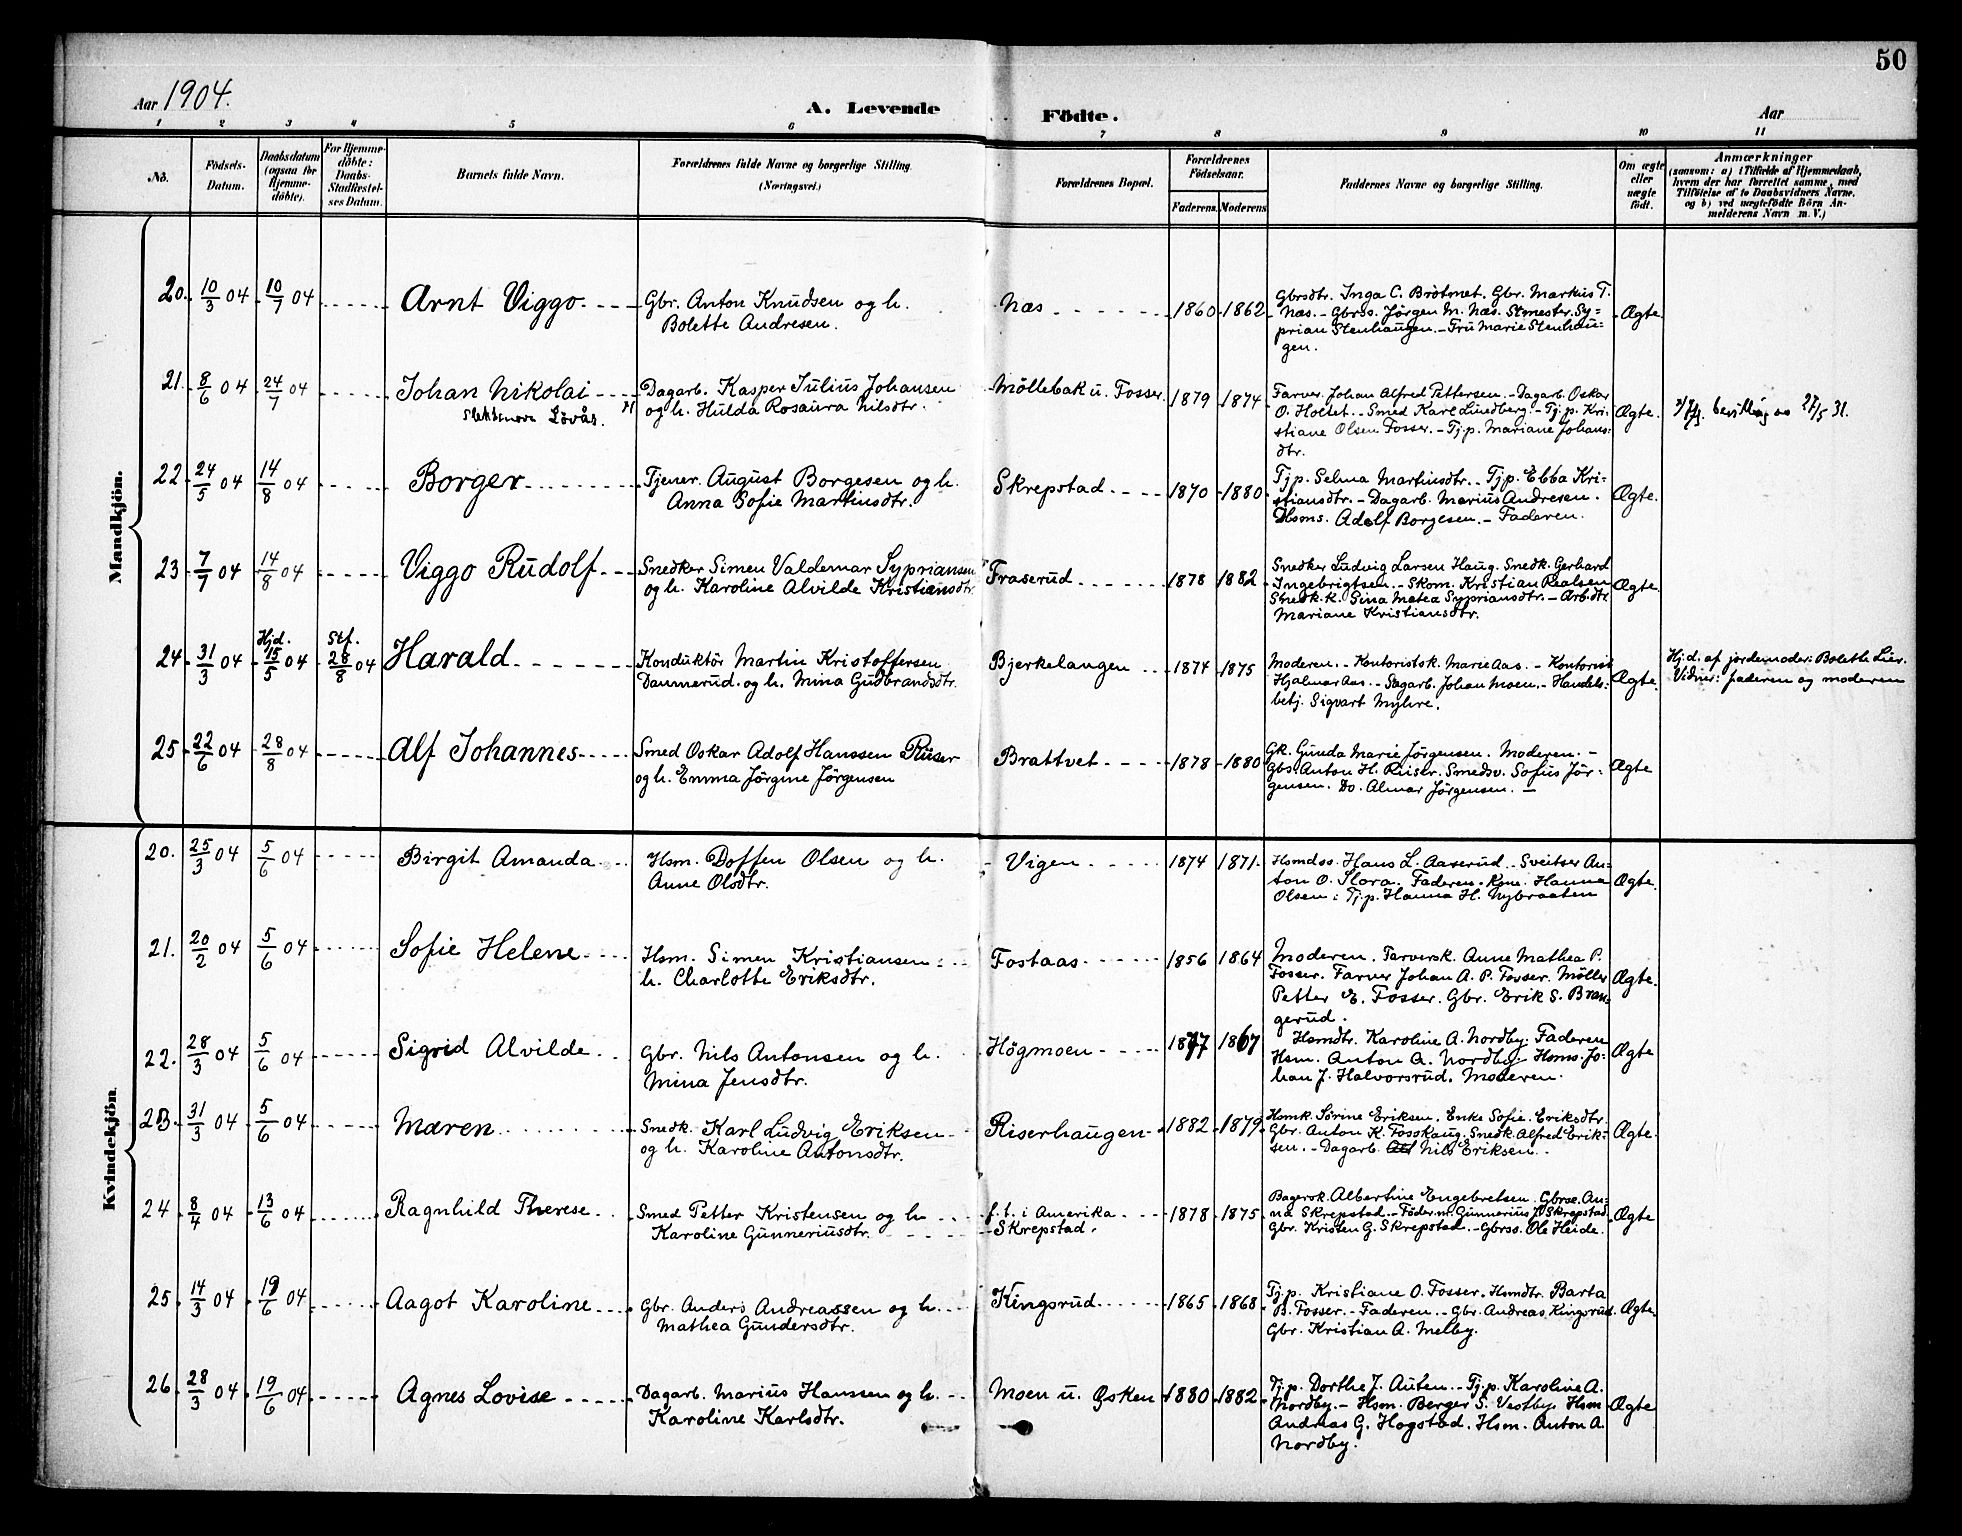 50
Aar 1904.
A. Levende Födte.
Aar
1 2 3 4 5 6 7 8 9 10 11
No.
Födsels-
Datum.
Daabsdatum
(ogsaa for
Hjemme-
döbte).
For Hjemme-
döbte:
Daabs-
Stadfæstel-
ses Datum.
Barnets fulde Navn.
Forældrenes fulde Navne og borgerlige Stilling.
(Næringsvei.)
Forældrenes Bopæl.
Forældrenes
Födselsaar.
Faderens. Moderens
Faddernes Navne og borgerlige Stilling.
Om ægte
eller
uægte
födt.
Anmærkninger
(saasom: a) i Tilfælde af Hjemmedaab,
hvem der har forrettet samme, med
Tilföielse af to Daabsvidners Navne,
og b) ved uægtefödte Börn An-
melderens Navn m. V.)
Mandkjön.
20. 10/3 04 10/7 04 Arnt Viggo. Gbr. Anton Knudsen og h.
Bolette Andresen.
Næs 1860 1862
Gbrsdtr. Inga C. Bråtmet. Gbr. Markus T.
Næs. - Gbrss. Jörgen M. Næs. Stmester. Sy=
prian Stenhaugen. - Fru Marie Stenhau=
gen.
Ægte.
21. 8/6 04 24/7 04 Johan Nikolai
Slektsnavn Lövås.
Dagarb. Kasper Julius Johansen
og h. Hulda Rosaura Nilsdtr.
Möllebak u. Fosser. 1879 1874
Farver Johan Alfred Pettersen. - Dagarb. Oskar
O. Holtet. - Smed Karl Lundberg. - Tj.p. Kri-
stiane Olsen Fosser. - Tj.p. Mariane Johans=
dtr.
Ægte. bevilling av 27/5 31.
22 24/5 04 14/8 04 Borger Tjener. August Borgesen og h.
Anna Sofie Martinsdtr.
Skrepstad 1870 1880
Tj.p. Selma Martinsdtr. - Tj.p. Ebba Kri=
stiansdtr. - Dagarb. Marius Andresen.
Hsms. Adolf Borgesen. - Faderen.
Ægte.
23 7/7 04 14/8 04 Viggo Rudolf Snedker Simen Valdemar Sypriansen
og h. Karoline Alvilde Kristiansdtr.
Fraserud 1878 1882
Snedker Ludvig Larsen Haug. Snedk. Gerhard
Ingebrigtsen. - Skom. Kristian Realsen
Snedk.k. Gina Matea Sypriansdtr. - Arb.dtr.
Mariane Kristiansdtr.
Ægte.
24 31/3 04 Hjd. 15/5 04 Stf. 28/8 04 Harald Konduktör Martin Kristoffersen
Dannerud. og h. Mina Gudbrandsdtr.
Bjerkelangen 1874 1875
Moderen. - Kontoristk. Marie Aas. - Kontorist
Hjalmar Aas. - Sagarb. Johan Moen. - Handels-
betj. Sigvart Myhre.
Ægte. Hj.d. af jordemoder: Bolette Lier.
Vidner: faderen og moderen
25 22/6 04 28/8 04 Alf Johannes Smed Oskar Adolf Hanssen Riiser
og h. Emma Jörgine Jörgensen
Brattvet 1878 1880
Gk. Gunda Marie Jörgensen. Moderen. -
Gbs. Anton H. Riiser. Smedsv. Sofus Jör-
gensen. Do. Almar Jörgensen. -
Ægte
Kvindekjön
20. 25/3 04 5/6 04 Birgit Amanda Hsm. Doffen Olsen og h.
Anne Olsdtr.
Vigen 1874 1871
Hsmdss. Hans L. Aaserud. - Sveitser An-
ton O. Flora. Faderen. Kone Hanna
Olsen: Tj.p. Hanna H. Nybraaten
Ægte.
21. 20/2 04 5/6 04 Sofie Helene Hsm. Simen Kristiansen
h. Charlotte Eriksdtr.
Fostaas 1856 1864
Moderen. Farversk. Anne Mathea P.
Fosser. Farver Johan A. P. Fosser. Möller
Petter E. Fosser. Gbr. Erik S. Bran-
gerud.
Ægte.
22. 28/3 04 5/6 04 Sigrid Alvilde Gbr. Nils Antonsen og h.
Mina Jensdtr.
Högmoen 1877 1867
Hsmdtr. Karoline A. Nordby. Faderen
Hsm. Anton A. Nordby. Hsms. Jo-
han J. Halvorsrud. Moderen.
Ægte
23. 31/3 04 5/6 04 Maren Snedk. Karl Ludvig Eriksen
og h. Karoline Antonsdtr.
Riserhaugen 1882 1879
Hsmk. Sörine Eriksen. Enke Sofie. Eriksdtr.
Gbr. Anton K. Fosshaug. Snedk. Alfred Erik-
sen. - Dagarb. Nils Eriksen.
Ægte.
24 8/4 04 13/6 04 Ragnhild Therese Smed Petter Kristensen og h.
Karoline Gunneriusdtr.
f. t. i Amerika
Skrepstad. 1878 1875
Bagersk. Albertine Engebretsen. Gbrsk. An-
na Skrepstad. - Föderm. Gunnerius J. Skrepstad
Gbr. Kristen G. Skrepstad. - Gbrss. Ole Heide.
Ægte
25 14/3 04 19/6 04 Aagot Karoline Gbr. Anders Andreassen og h.
Mathea Gundersdtr.
Kingsrud 1865 1868
Tj.p. Kristiane O. Fosser. Hsmdtr. Barta
B. Fosser. - Faderen. - Gbr. Andreas Kingsrud.
Gbr. Kristian A. Melby.
Ægte.
26 28/3 04 19/6 04 Agnes Lovise Dagarb. Marius Hanssen og h.
Karoline Karlsdtr.
Moen u. Øsken 1880 1882
Tj.p. Dorthe J. Auten. - Tj.p. Karoline A.
Nordby. - Hsm. Berger S. Vestby. Hsm
Andreas G. Hogstad. Hsm. Anton A.
Nordby.
Ægte